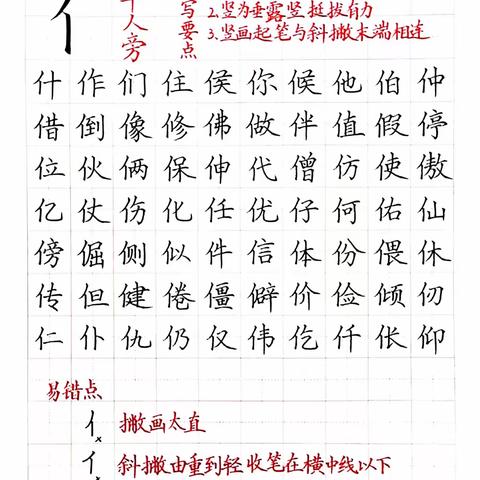 亻
单人旁
写要点
2.竖为垂露竖挺拔有力
3.竖画起笔与斜撇末端相连
什作们住侯你候他伯仲
借倒像修佛做伴值假停
位伙俩保伸代僧仿使傲
亿仗伤化任优仔何佑仙
傍倔侧似件信体份偎休
传但健倦僵僻价俭倾仞
仁仆仇仍仅伟仡仟伥仰
易错点
亻 撇画太直
亻 斜撇由重到轻收笔在横中线以下